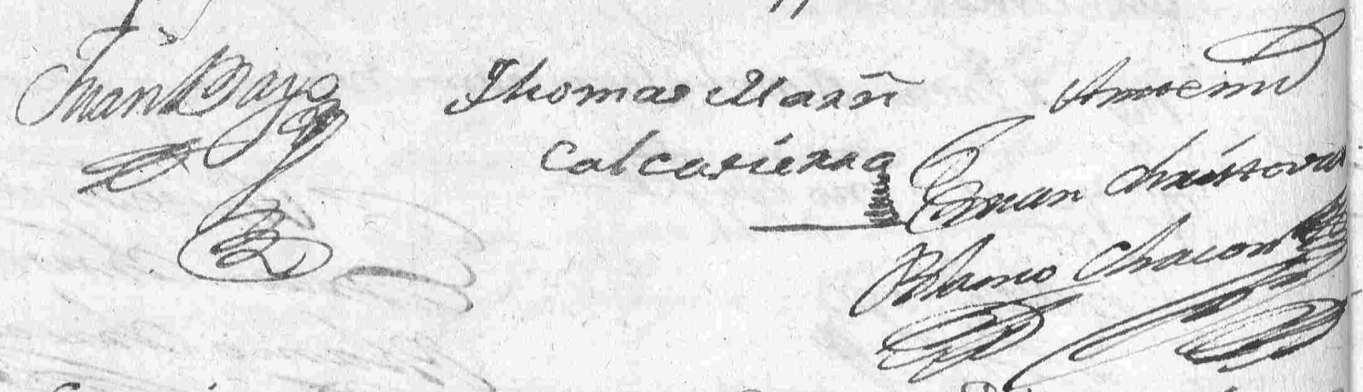 Juan Bayo
Thomas Marñ
Calcasierra
Ante mi
Juan Christoval
Polanco Chacon